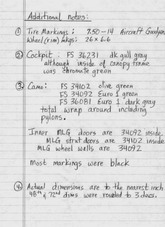 Additional notes:
① Tire Markings: 7.50-14 Aircraft Goodyear
Wheel/rim/ dimps: 26 x 6.6
② Cockpit. FS 36231 dk gull gray
although inside of canopy frame
was chromate green
③ Camo: FS 34102 olive green
FS 34092 Euro 1 green
FS 36081 Euro 1 dark gray
total wrap around including
pylons.
Inner MLG doors are 34092 inside.
MLG strut doors are 34102 inside
MLG wheel wells are 34092
Most markings were black
④ Actual dimensions are to the nearest inch
48th & 72nd dims were rounded to 3 decs.